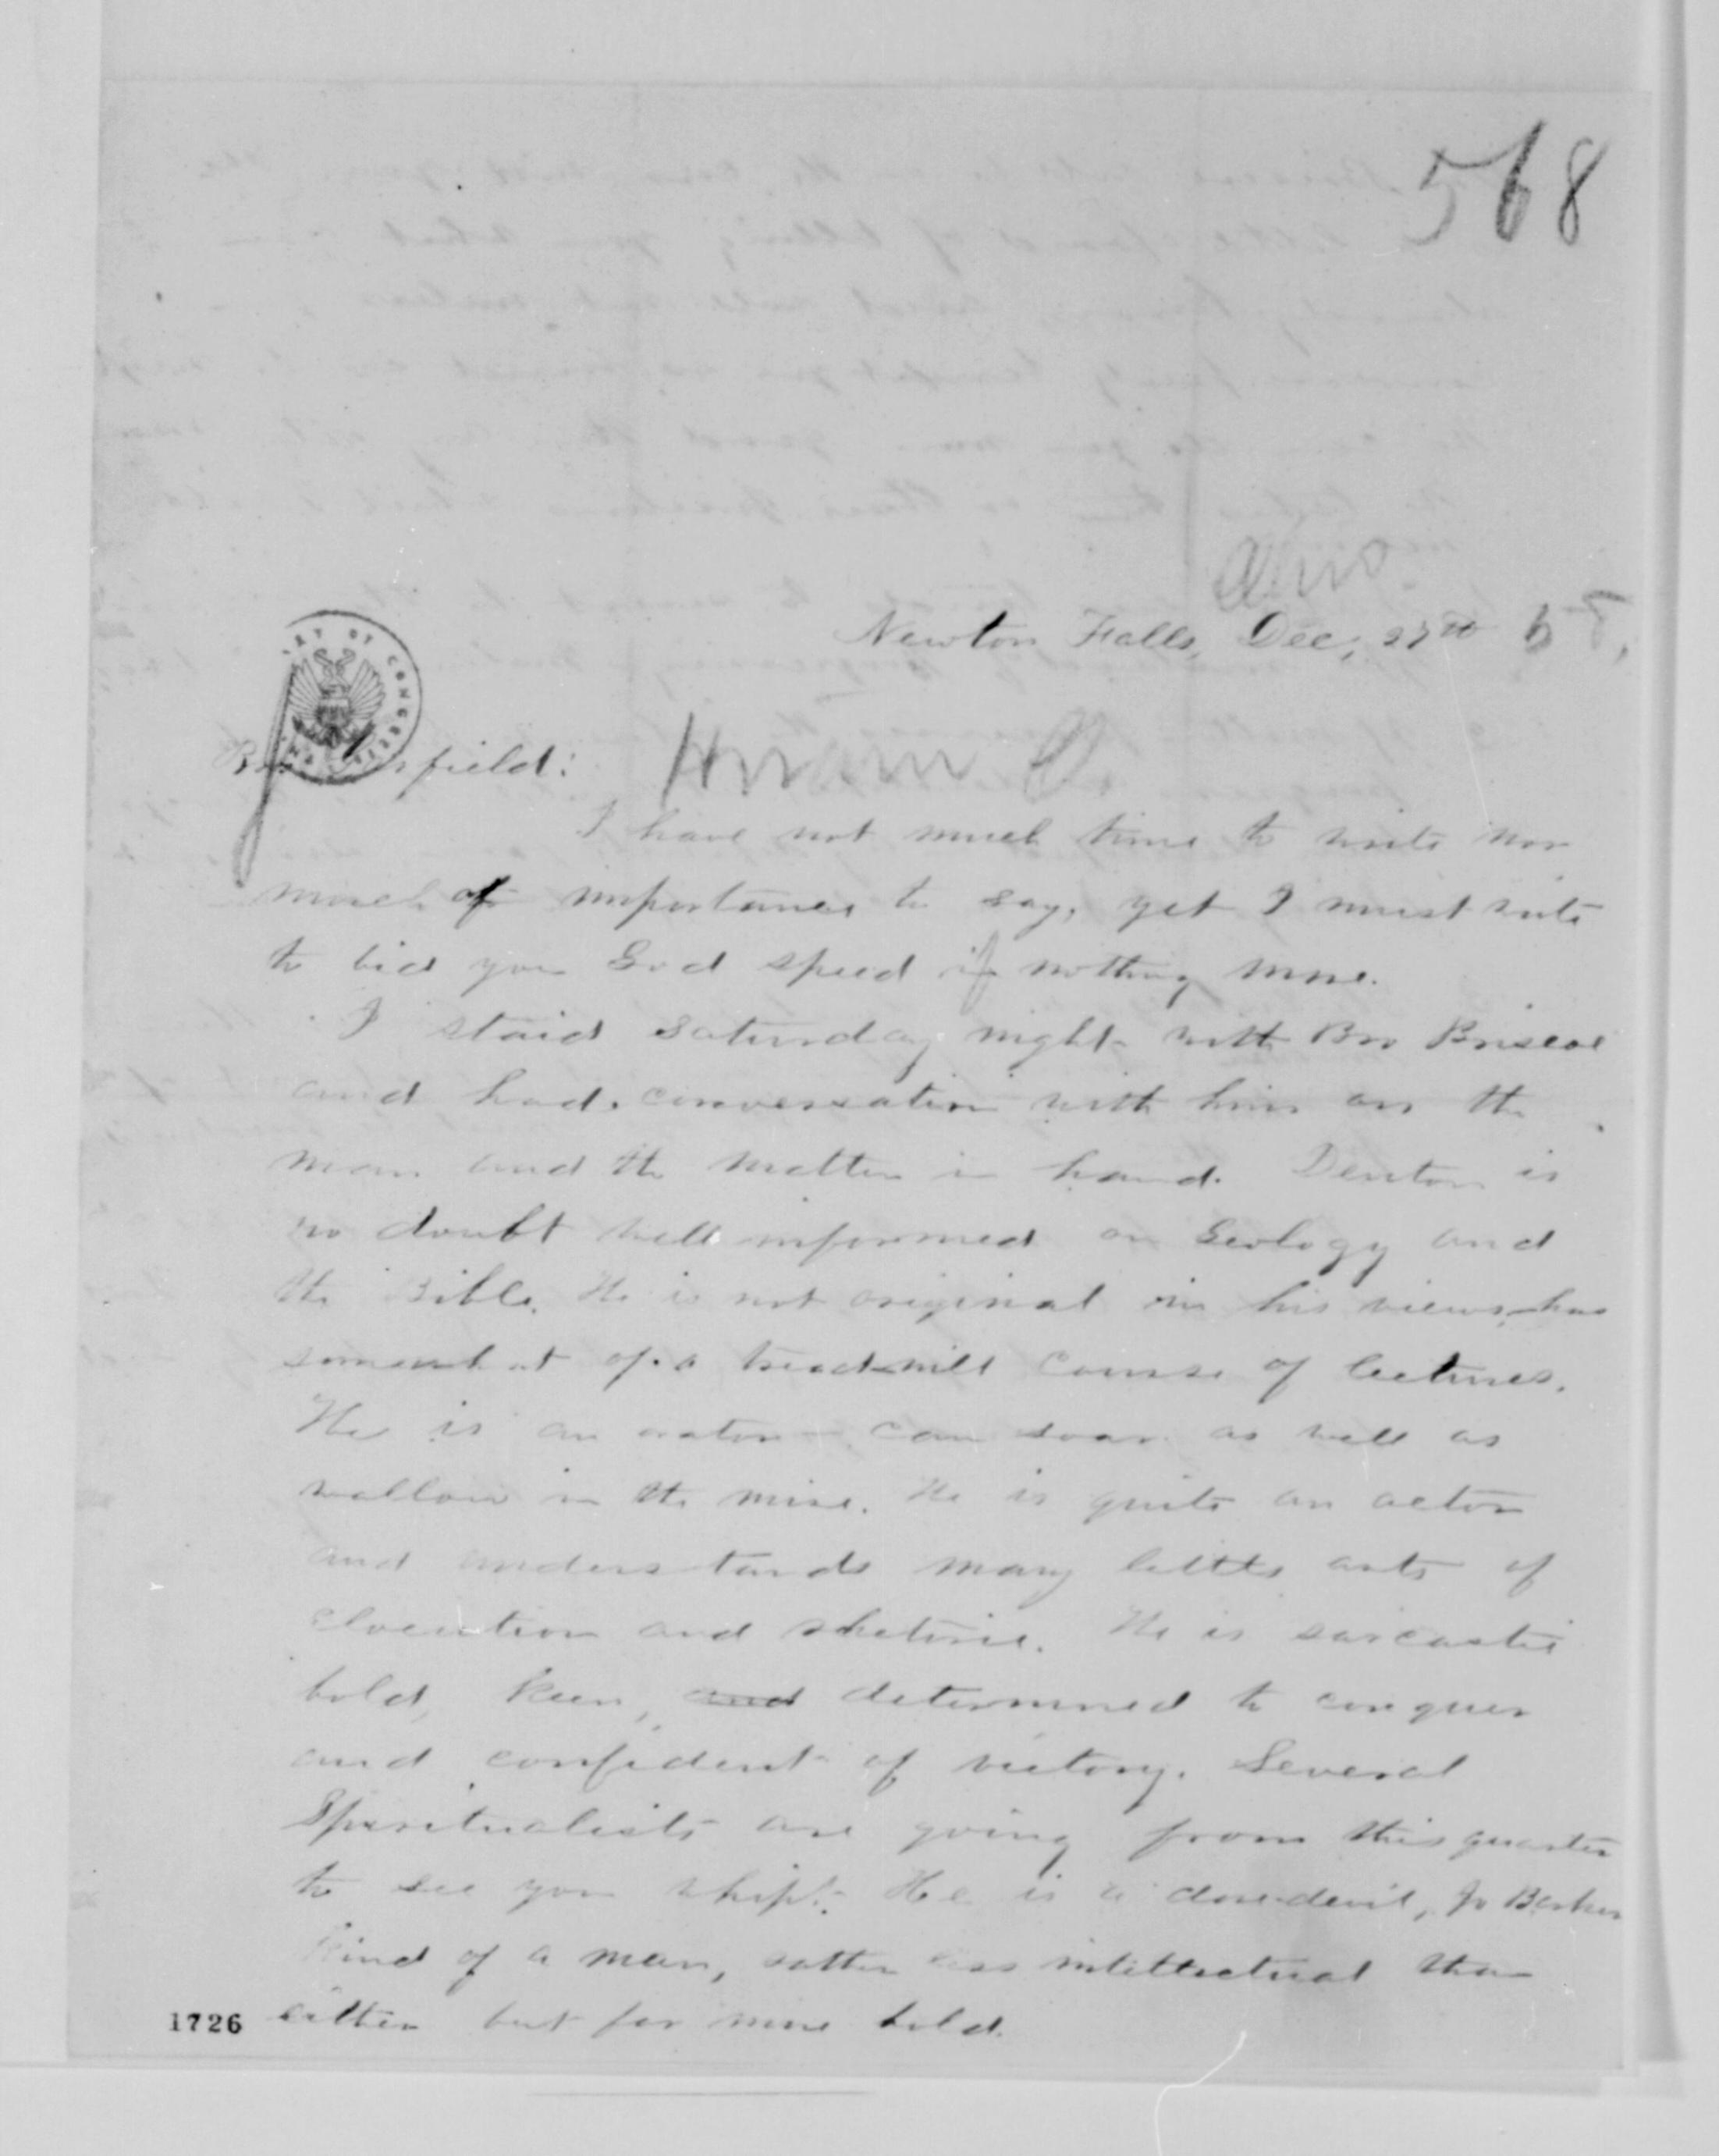 568
Ohio
Newton Falls, Dec, 27th 58,
Bro field:
Hiram O.
I have not much time to write nor
much of importance to say, yet I must write
to bid you God speed if nothing more.
I staid Saturday night with Bro Briscoe
and had conversation with him on the
man and the matter in hand. Denton is
no doubt well informed on Geology and
the Bible. He is not original in his views, has
somewhat of a treadmill course of lectures.
He is an orator – can soar as well as
wallow in the mire. He is quite an actor
and understands many little arts of
elocution and rhetoric. He is sarcastic
bold, keen, and determined to conquer
and confident of victory. Several
Spiritualists are going from this quarter
to see you whipt. He is a dare-devil, Jo Barker
kind of a man, rather less intellectual than
either but far more bold.
1726